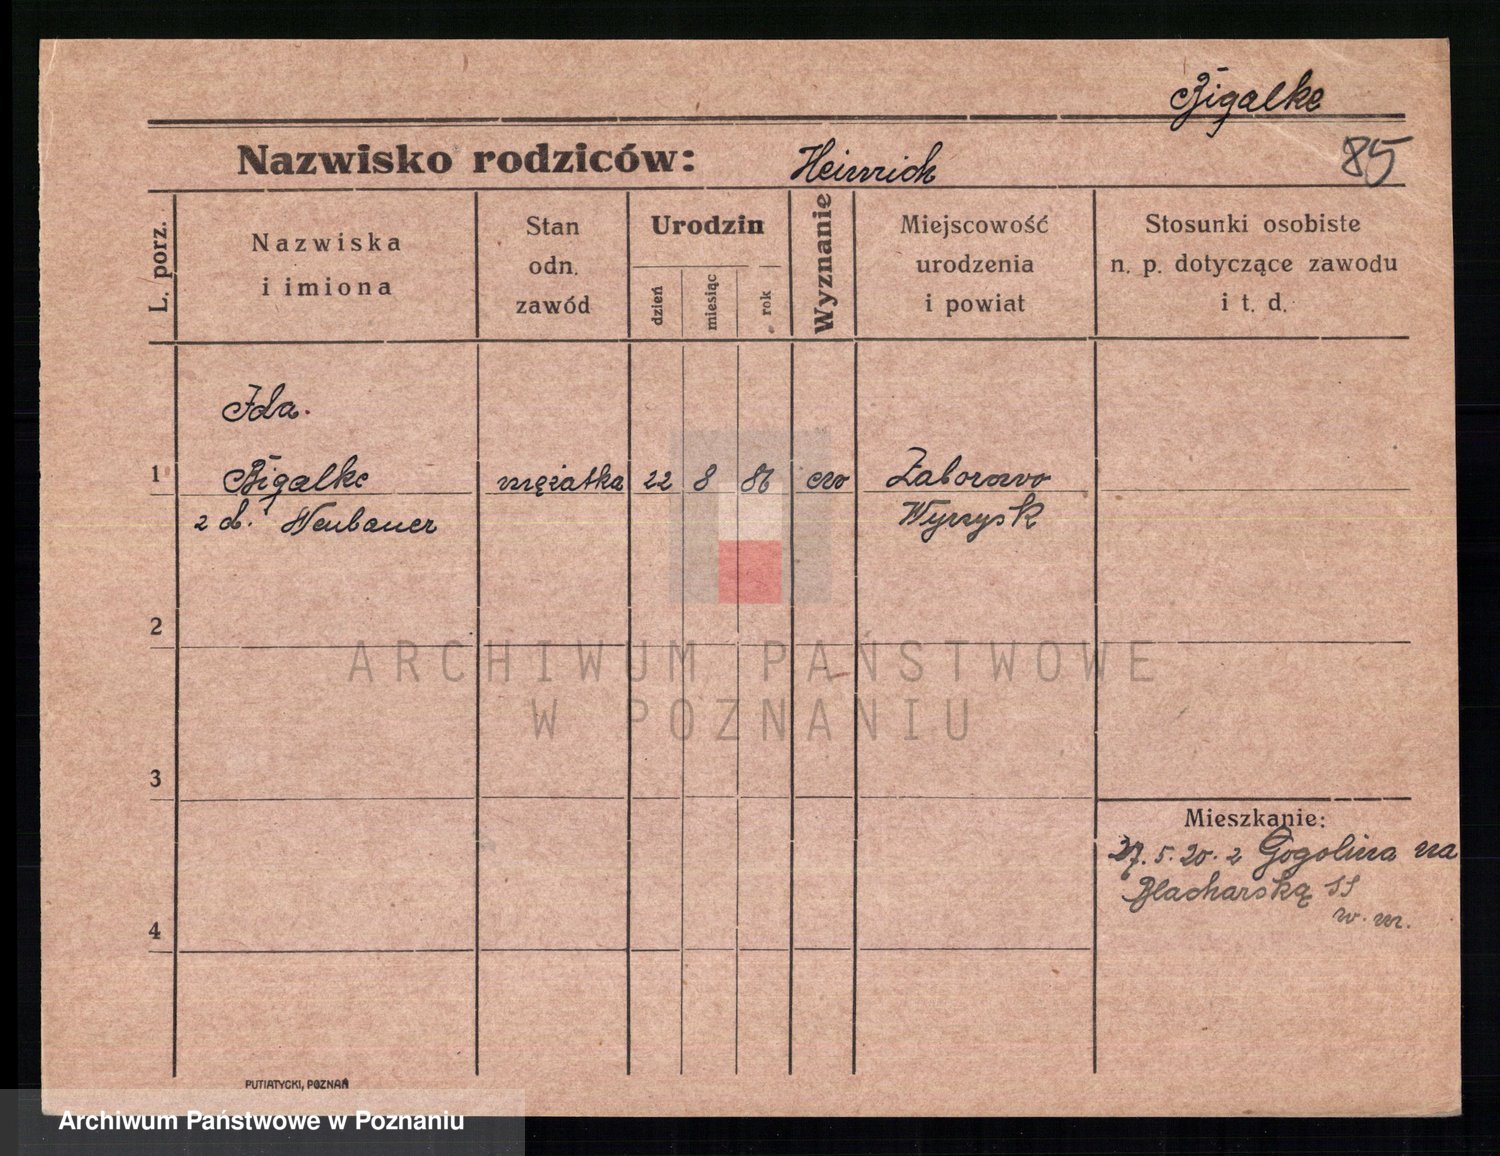 Bigalke
Nazwisko rodziców: Heinrich 85
L. porz.
Nazwiska
i imiona
Stan
odn.
zawód
Urodzin
dzień
miesiąc
rok
Wyznanie
Miejscowość
urodzenia
i powiat
Stosunki osobiste
n. p. dotyczące zawodu
i t. d.
Ida.
1 Bigalke mężatka 22 8 86 ew Zaborowo
z d. Neubauer Wyrzysk
2
ARCHIWUM PAŃSTWOWE
W POZNANIU
3
Mieszkanie:
27. 5. 20. z Gogolina na
Blacharską
w. m.
4
PUTIATYCKI, POZNAŃ
Archiwum Państwowe w Poznaniu